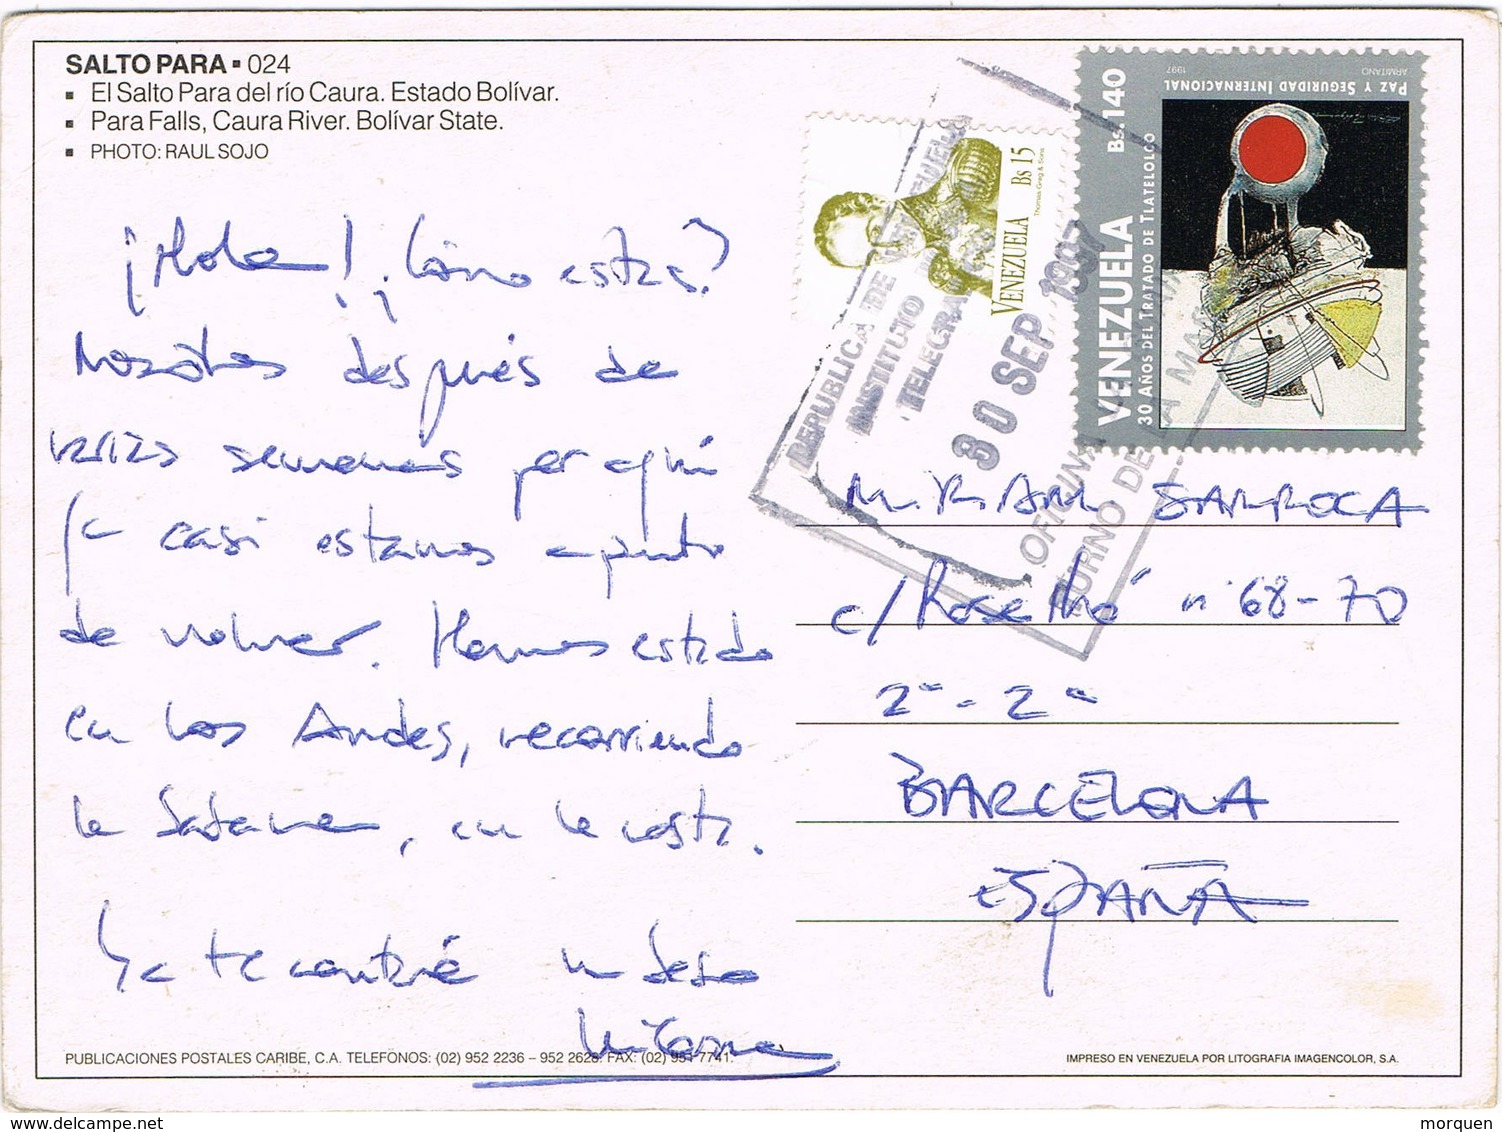 SALTO PARA ▪ 024
▪ El Salto Para del río Caura. Estado Bolívar.
▪ Para Falls, Caura River. Bolívar State.
▪ PHOTO: RAUL SOJO
¡Hola! ¡Cómo estás?
Nosotros después de
varias semanas por aquí
ya casi estamos a punto
de volver. Hemos estado
en los Andes, recorriendo
la Sabana, en la costa.
Ya te contaré un beso
PUBLICACIONES POSTALES CARIBE, C.A. TELEFONOS: (02) 952 2236 – 952 2628. FAX: (02) 951 7741.
VENEZUELA Bs 15
Thomas Greg & Sons
VENEZUELA Bs. 140
30 AÑOS DEL TRATADO DE TLATELOLCO
PAZ Y SEGURIDAD INTERNACIONAL
ARMITANO 1997
REPUBLICA DE VENEZUELA
INSTITUTO
TELEGRA
30 SEP 1997
OFICINA
TURNO DE LA MA
MIRIAM SARROCA
c/ Roselló nº 68-70
2º - 2ª
BARCELONA
ESPAÑA
IMPRESO EN VENEZUELA POR LITOGRAFIA IMAGENCOLOR, S.A.
www.delcampe.net
morquen